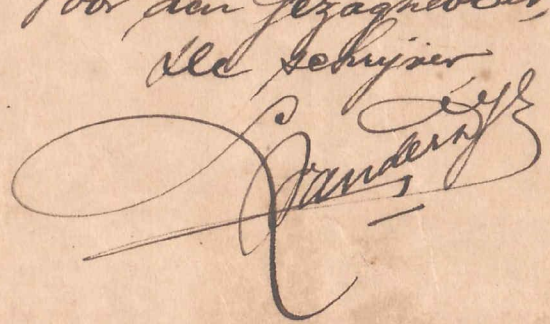 Voor den gezaghebber,
De schrijver